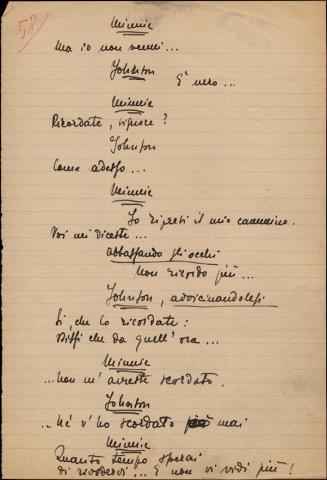 58
Minnie
Ma io non venni...
Johnson
È vero...
Minnie
Ricordate, signore?
Johnson
Come adesso...
Minnie
Io ripresi il mio cammino.
Voi mi diceste...
abbassando gli occhi
Non ricordo più...
Johnson, avvicinandolesi
Sì, che lo ricordate:
Dissi che da quell'ora...
Minnie
...non m'avreste scordato.
Johnson
...Né v'ho scordato mai
Minnie
Quanto tempo sperai
di rivedervi... E non vi vidi più!